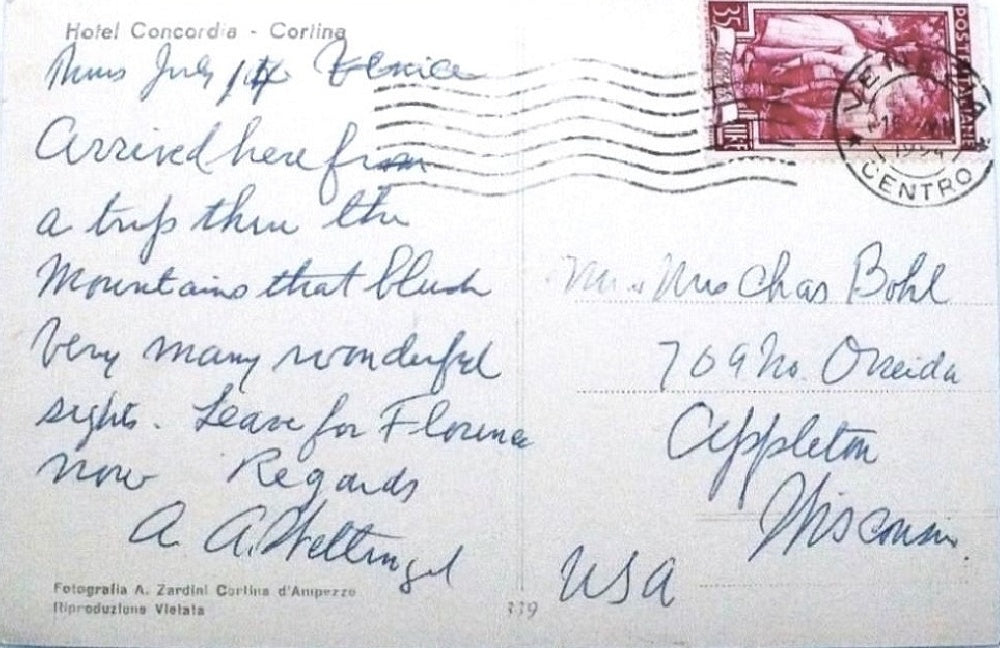 Hotel Concordia - Cortina
Thurs July 1st Venice
Arrived here from
a trip thru the
Mountains that blush
Very many wonderful
sights. Leave for Florence
now Regards
A. A. Wettengel
Fotografia A. Zardini Cortina d'Ampezzo
Riproduzione Vietata
339
35
LIRE
POSTE ITALIANE
VENEZIA
CENTRO
Mr & Mrs Chas Bohl
709 No. Oneida
Appleton
Wisconsin.
USA